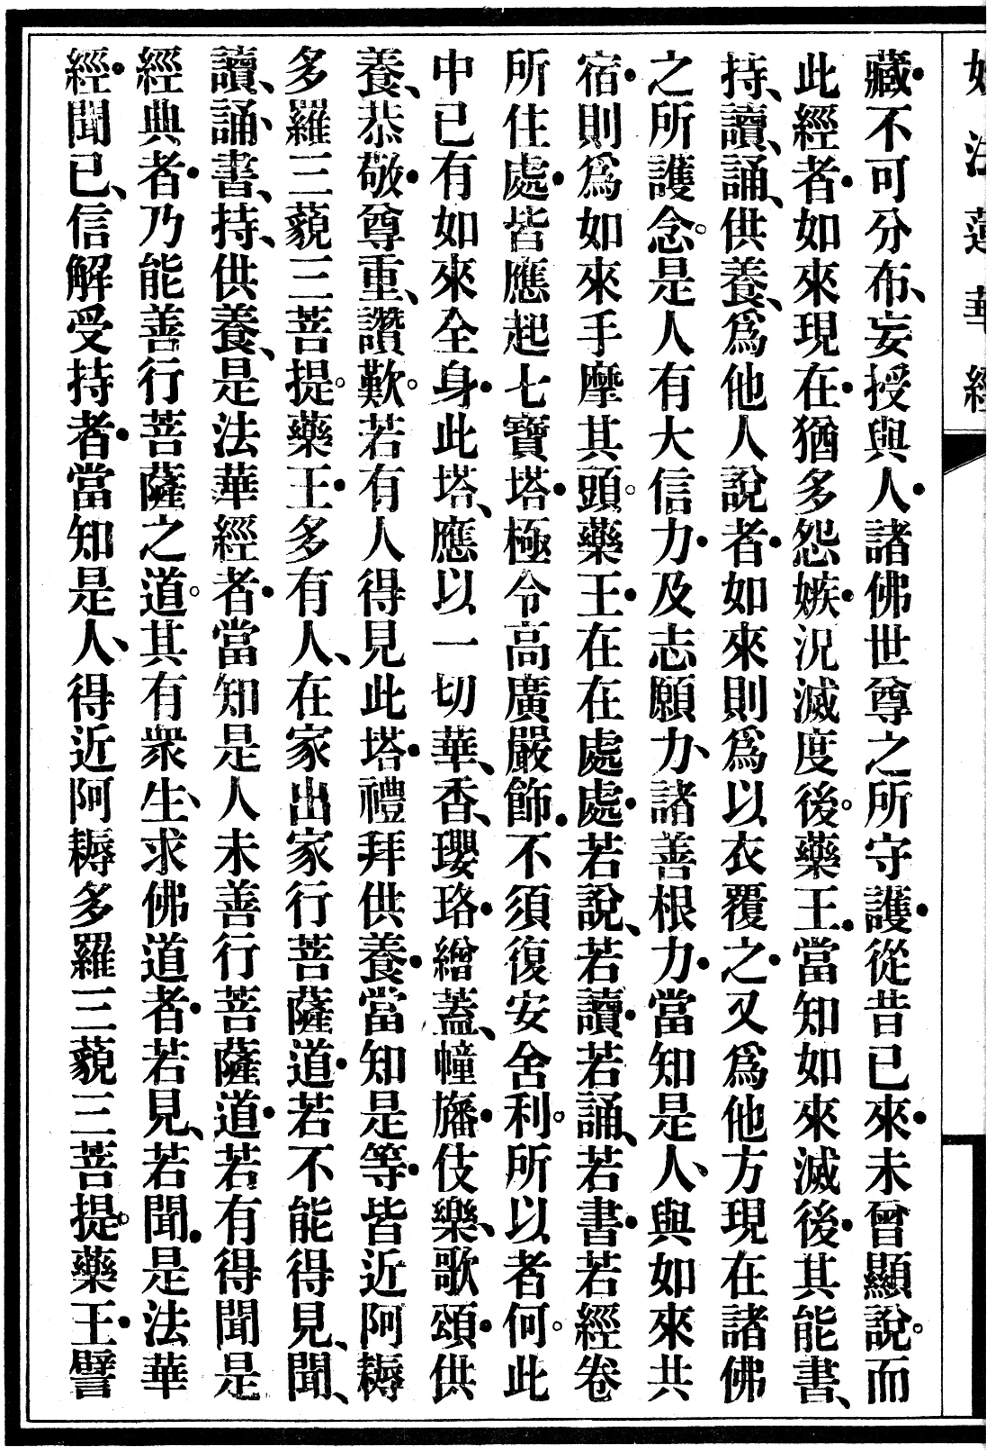 妙法蓮華經
藏・不可分布、妄授與人・諸佛世尊之所守護・從昔已來・未曾顯說。而
此經者・如來現在・猶多怨嫉・況滅度後。藥王・當知如來滅後・其能書、
持、讀、誦、供養、爲他人說者・如來則爲以衣覆之・又爲他方現在諸佛
之所護念。是人有大信力・及志願力、諸善根力・當知是人、與如來共
宿・則爲如來手摩其頭。藥王・在在處處・若說、若讀・若誦、若書・若經卷
所住處・皆應起七寶塔・極令高廣嚴飾・不須復安舍利。所以者何。此
中已有如來全身・此塔、應以一切華、香、瓔珞・繒蓋、幢旛・伎樂、歌頌・供
養、恭敬・尊重、讚歎。若有人得見此塔・禮拜供養・當知是等・皆近阿耨
多羅三藐三菩提。藥王・多有人、在家出家行菩薩道・若不能得見、聞、
讀、誦、書、持、供養、是法華經者・當知是人未善行菩薩道・若有得聞是
經典者・乃能善行菩薩之道。其有衆生、求佛道者・若見、若聞・是法華
經・聞已、信解受持者・當知是人、得近阿耨多羅三藐三菩提。藥王・譬